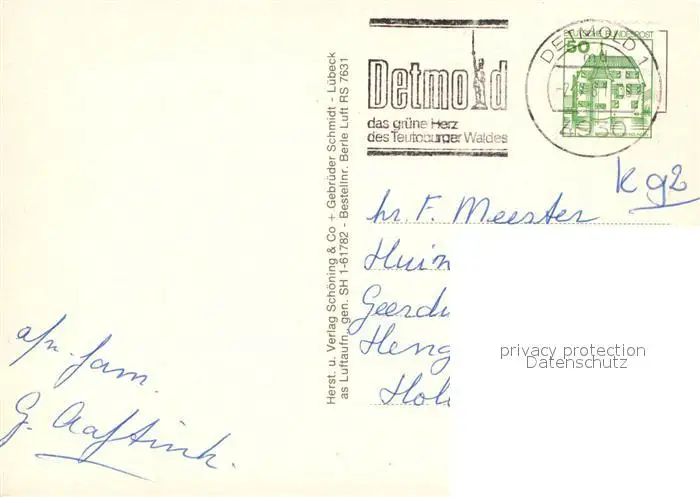 Detmold
das grüne Herz
des Teutoburger Waldes
DETMOLD 1
4930
DEUTSCHE BUNDESPOST
50
Herst. u. Verlag Schöning & Co + Gebrüder Schmidt - Lübeck
as Luftaufn. gen. SH 1-61782 - Bestellnr. Berle Luft RS 7631
kg2
hr. F. Meester
Huin
Geerdi
Heng
Hol
privacy protection
Datenschutz
afn. fam.
G. Aaftink.